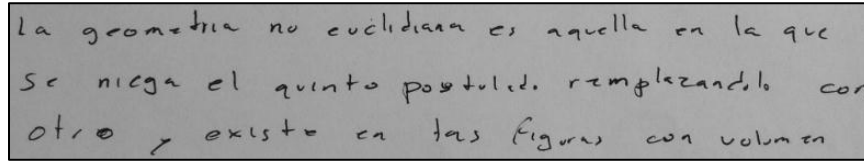 La geometria no euclidiana es aquella en la que
se niega el quinto postulado remplazandolo con
otro y existe en las figuras con volumen